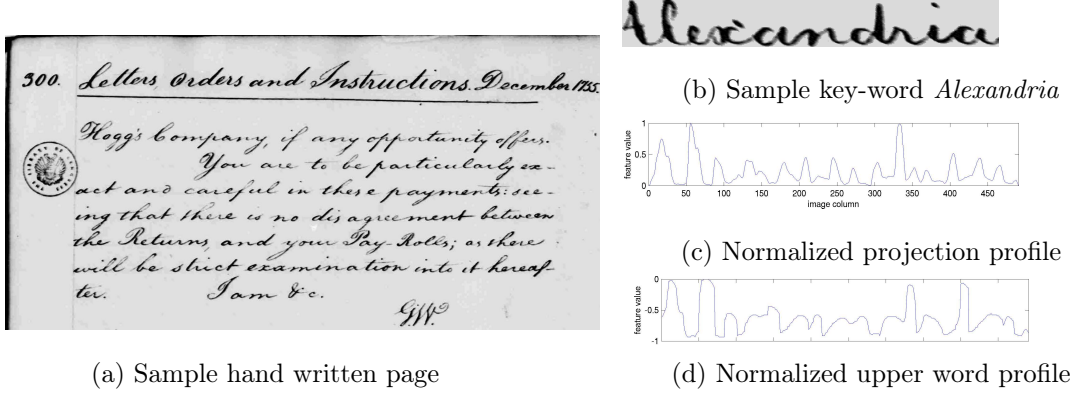 300. Letters, Orders and Instructions. December 1755.
Hogg's Company, if any opportunity offers.
You are to be particularly ex-
act and careful in these payments: see-
ing that there is no disagreement between
the Returns, and your Pay-Rolls; as there
will be strict examination into it hereaf-
ter. I am &c.
G:W.
(a) Sample hand written page
Alexandria
(b) Sample key-word Alexandria
feature value
1
0.5
0
0 50 100 150 200 250 300 350 400 450
image column
(c) Normalized projection profile
feature value
0
-0.5
-1
(d) Normalized upper word profile